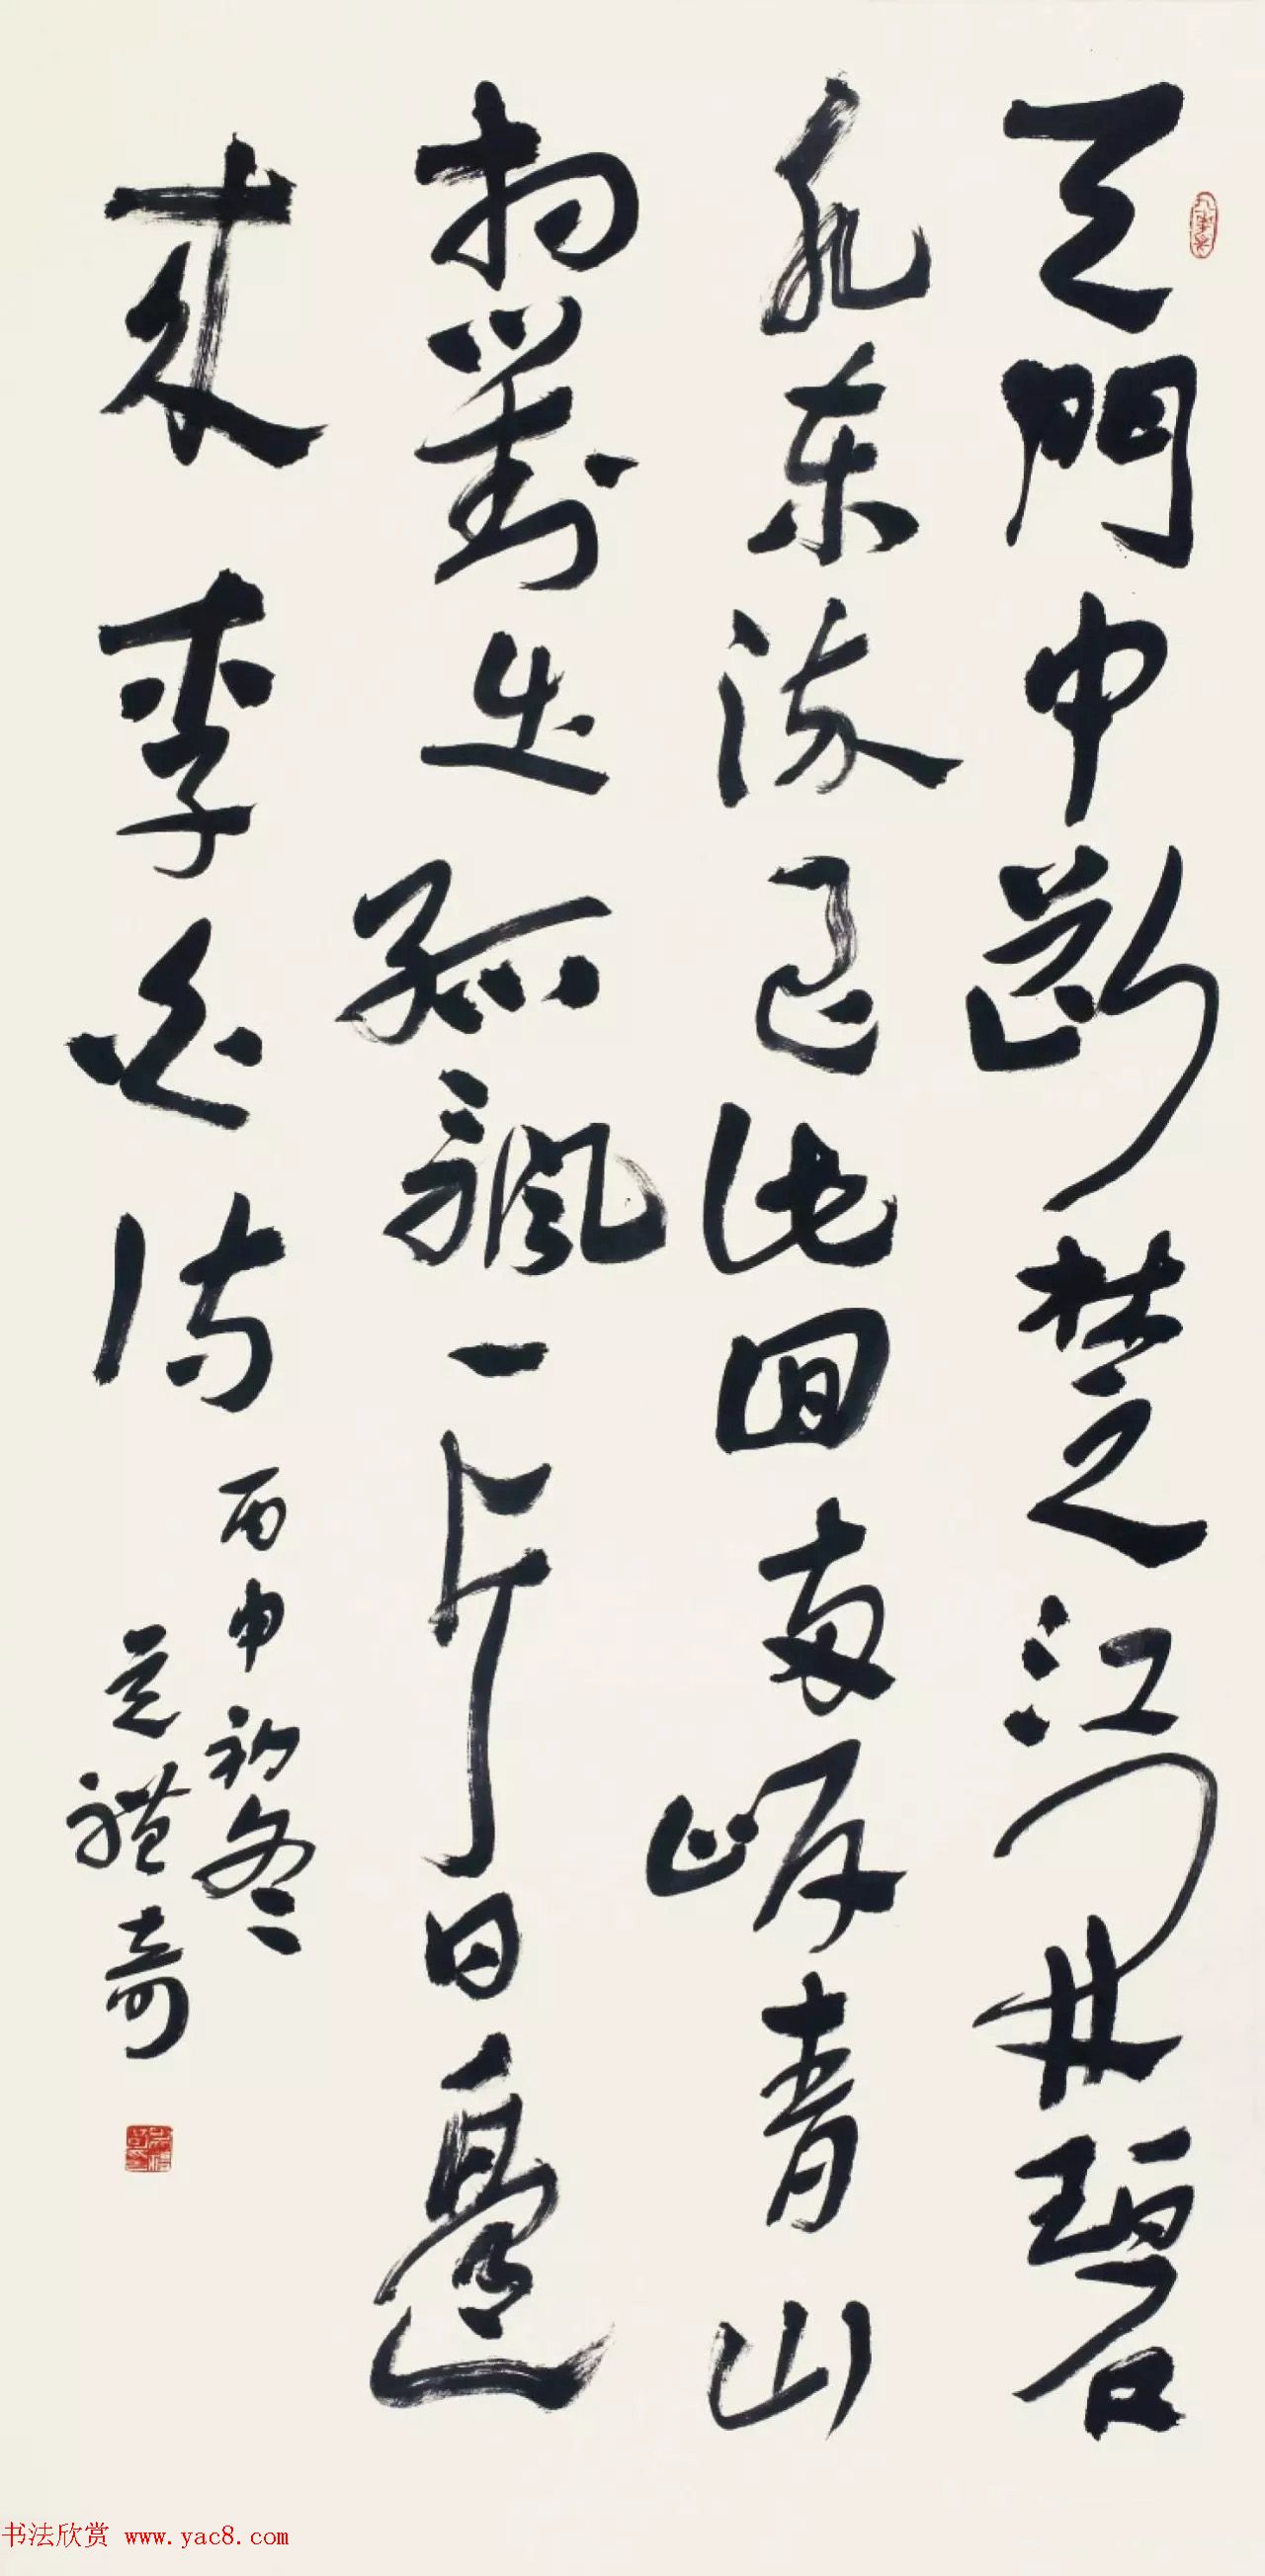 天門中斷楚江開碧
水東流至此回兩岸青山
相對出孤帆一片日邊
來 李白詩
丙申初冬
禮奇
书法欣赏 www.yac8.com